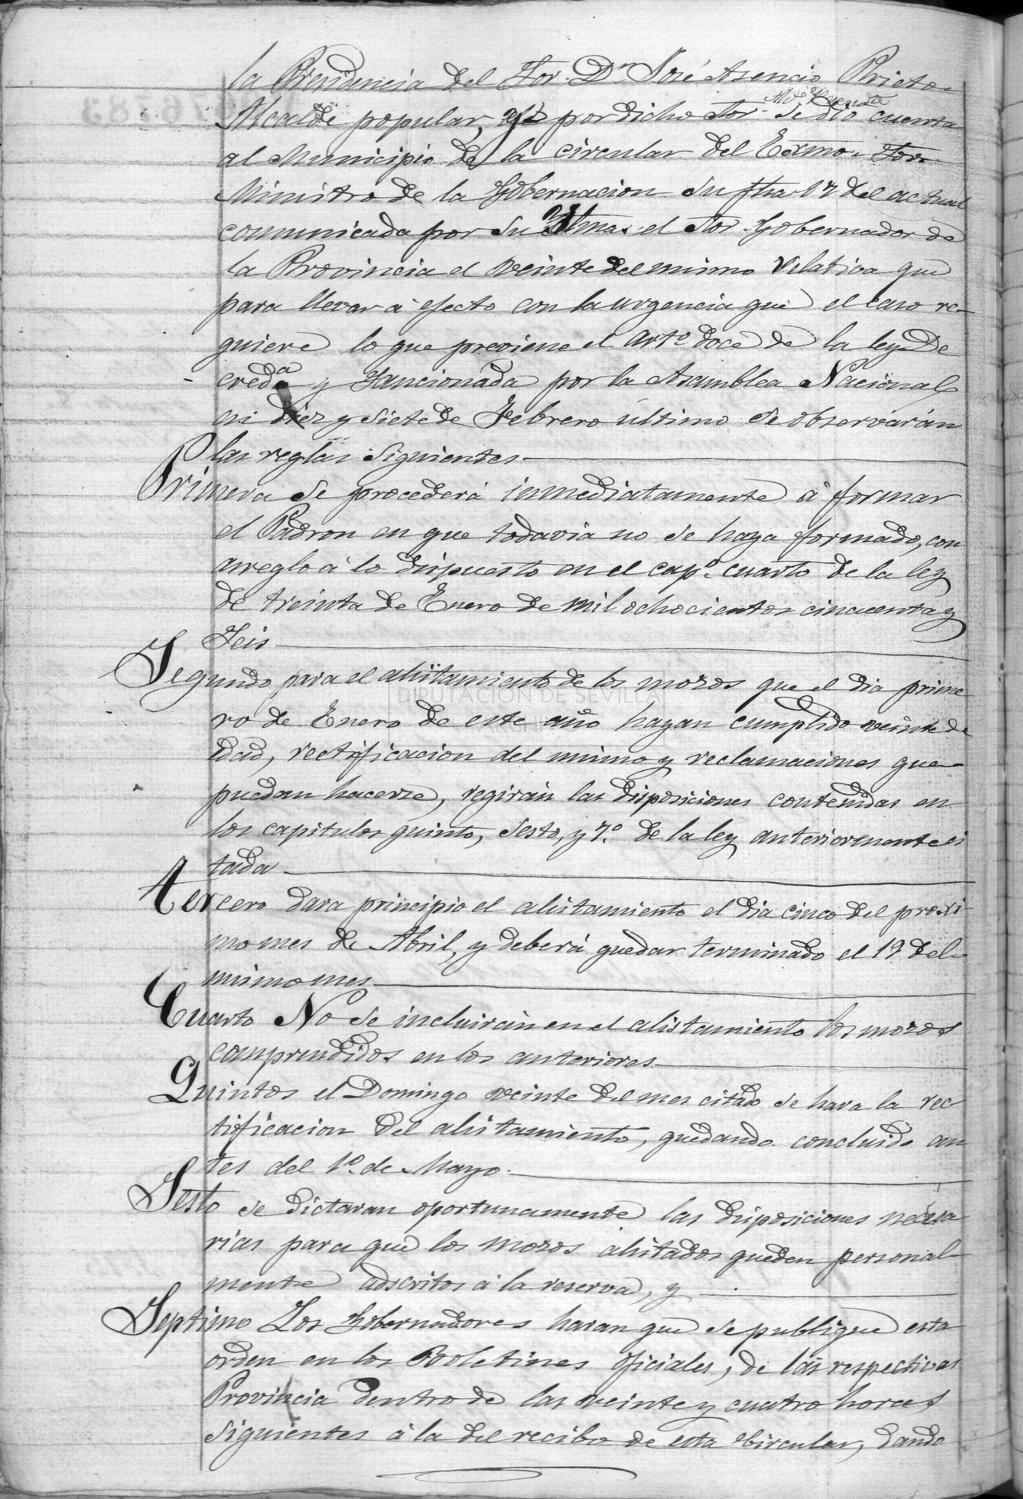 la Presidencia del Sor. Dn José Asencio Prieto
Alcalde popular, y por dicho Sor se dió cuenta
al Municipio de la circular del Exmo. Sor.
Ministro de la Gobernacion su fha 17 del actual
comunicada por Su Ilma. el Sor Gobernador de
la Provincia el veinte del mismo relativa que
para llevar á efecto con la urgencia que el caso re-
quiere lo que previene el arto. doce de la ley De
creda y Sancionada por la Asamblea Nacional
en Diez y siete de Febrero último se observarán
las reglas siguientes
Primera se procederá inmediatamente á formar
el Padron en que todavia no se haya formado, con
arreglo á lo dispuesto en el capo. cuarto de la ley
de treinta de Enero de mil ochocientos cincuenta y
Seis
Segundo para el alistamiento de los mozos que el dia prime
ro de Enero de este año hayan cumplido veinte de
edad, rectificacion del mismo y reclamaciones que
puedan hacerse, regirán las disposiciones contenidas en
los capitulos quinto, sesto, y 7.o de la ley anteriormente ci
tada
Tercero dara principio el alistamiento el dia cinco del proxi-
mo mes de Abril, y deberá quedar terminado el 19 del
mismo mes
Cuarto No se incluirán en el alistamiento los mozos
comprendidos en los anteriores
Quintos el Domingo veinte del mes citado se hara la rec
tificacion del alistamiento, quedando concluido an
tes del 1o. de Mayo.
Sesto se dictaran oportunamente las disposiciones necesa
rias para que los mozos alistados queden personal-
mente adscritos á la reserva, y
Septimo Los Gobernadores haran que se publique esta
orden en los Boletines oficiales, de las respectivas
Provincia dentro de las veinte y cuatro horas
siguientes á la del recibo de esta circular, dando
DIPUTACIÓN DE SEVILLA